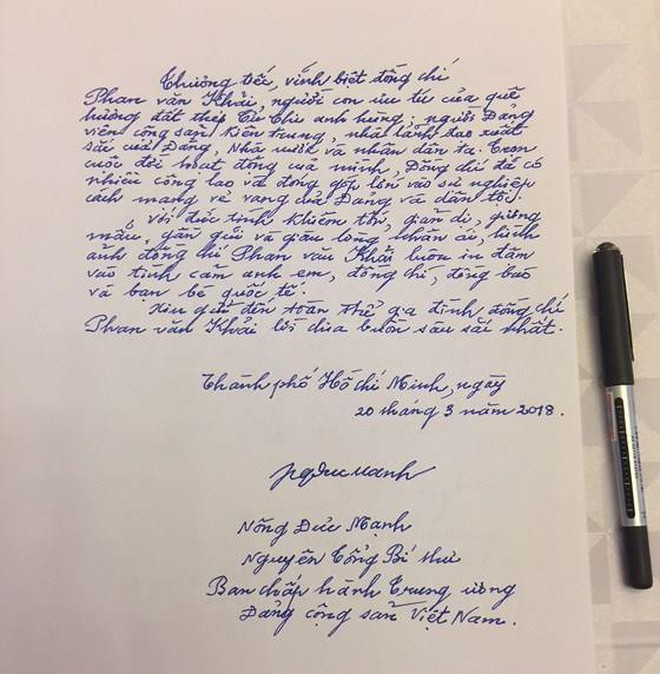 Thương tiếc, vĩnh biệt đồng chí
Phan văn Khải, người con ưu tú của quê
hương đất thép Củ Chi anh hùng; người Đảng
viên cộng sản kiên trung, nhà lãnh đạo xuất
sắc của Đảng, Nhà nước và nhân dân ta. Trọn
cuộc đời hoạt động của mình, Đồng chí đã có
nhiều công lao và đóng góp lớn vào sự nghiệp
cách mạng vẻ vang của Đảng và dân tộc.
Với đức tính khiêm tốn, giản dị, gương
mẫu, gần gũi và giàu lòng nhân ái, hình
ảnh đồng chí Phan văn Khải luôn in đậm
vào tình cảm anh em, đồng chí, đồng bào
và bạn bè quốc tế.
Xin gửi đến toàn thể gia đình đồng chí
Phan văn Khải lời chia buồn sâu sắc nhất.
Thành phố Hồ Chí Minh, ngày
20 tháng 3 năm 2018.
Nông Đức Mạnh
Nguyên Tổng Bí thư
Ban chấp hành Trung ương
Đảng cộng sản Việt Nam.